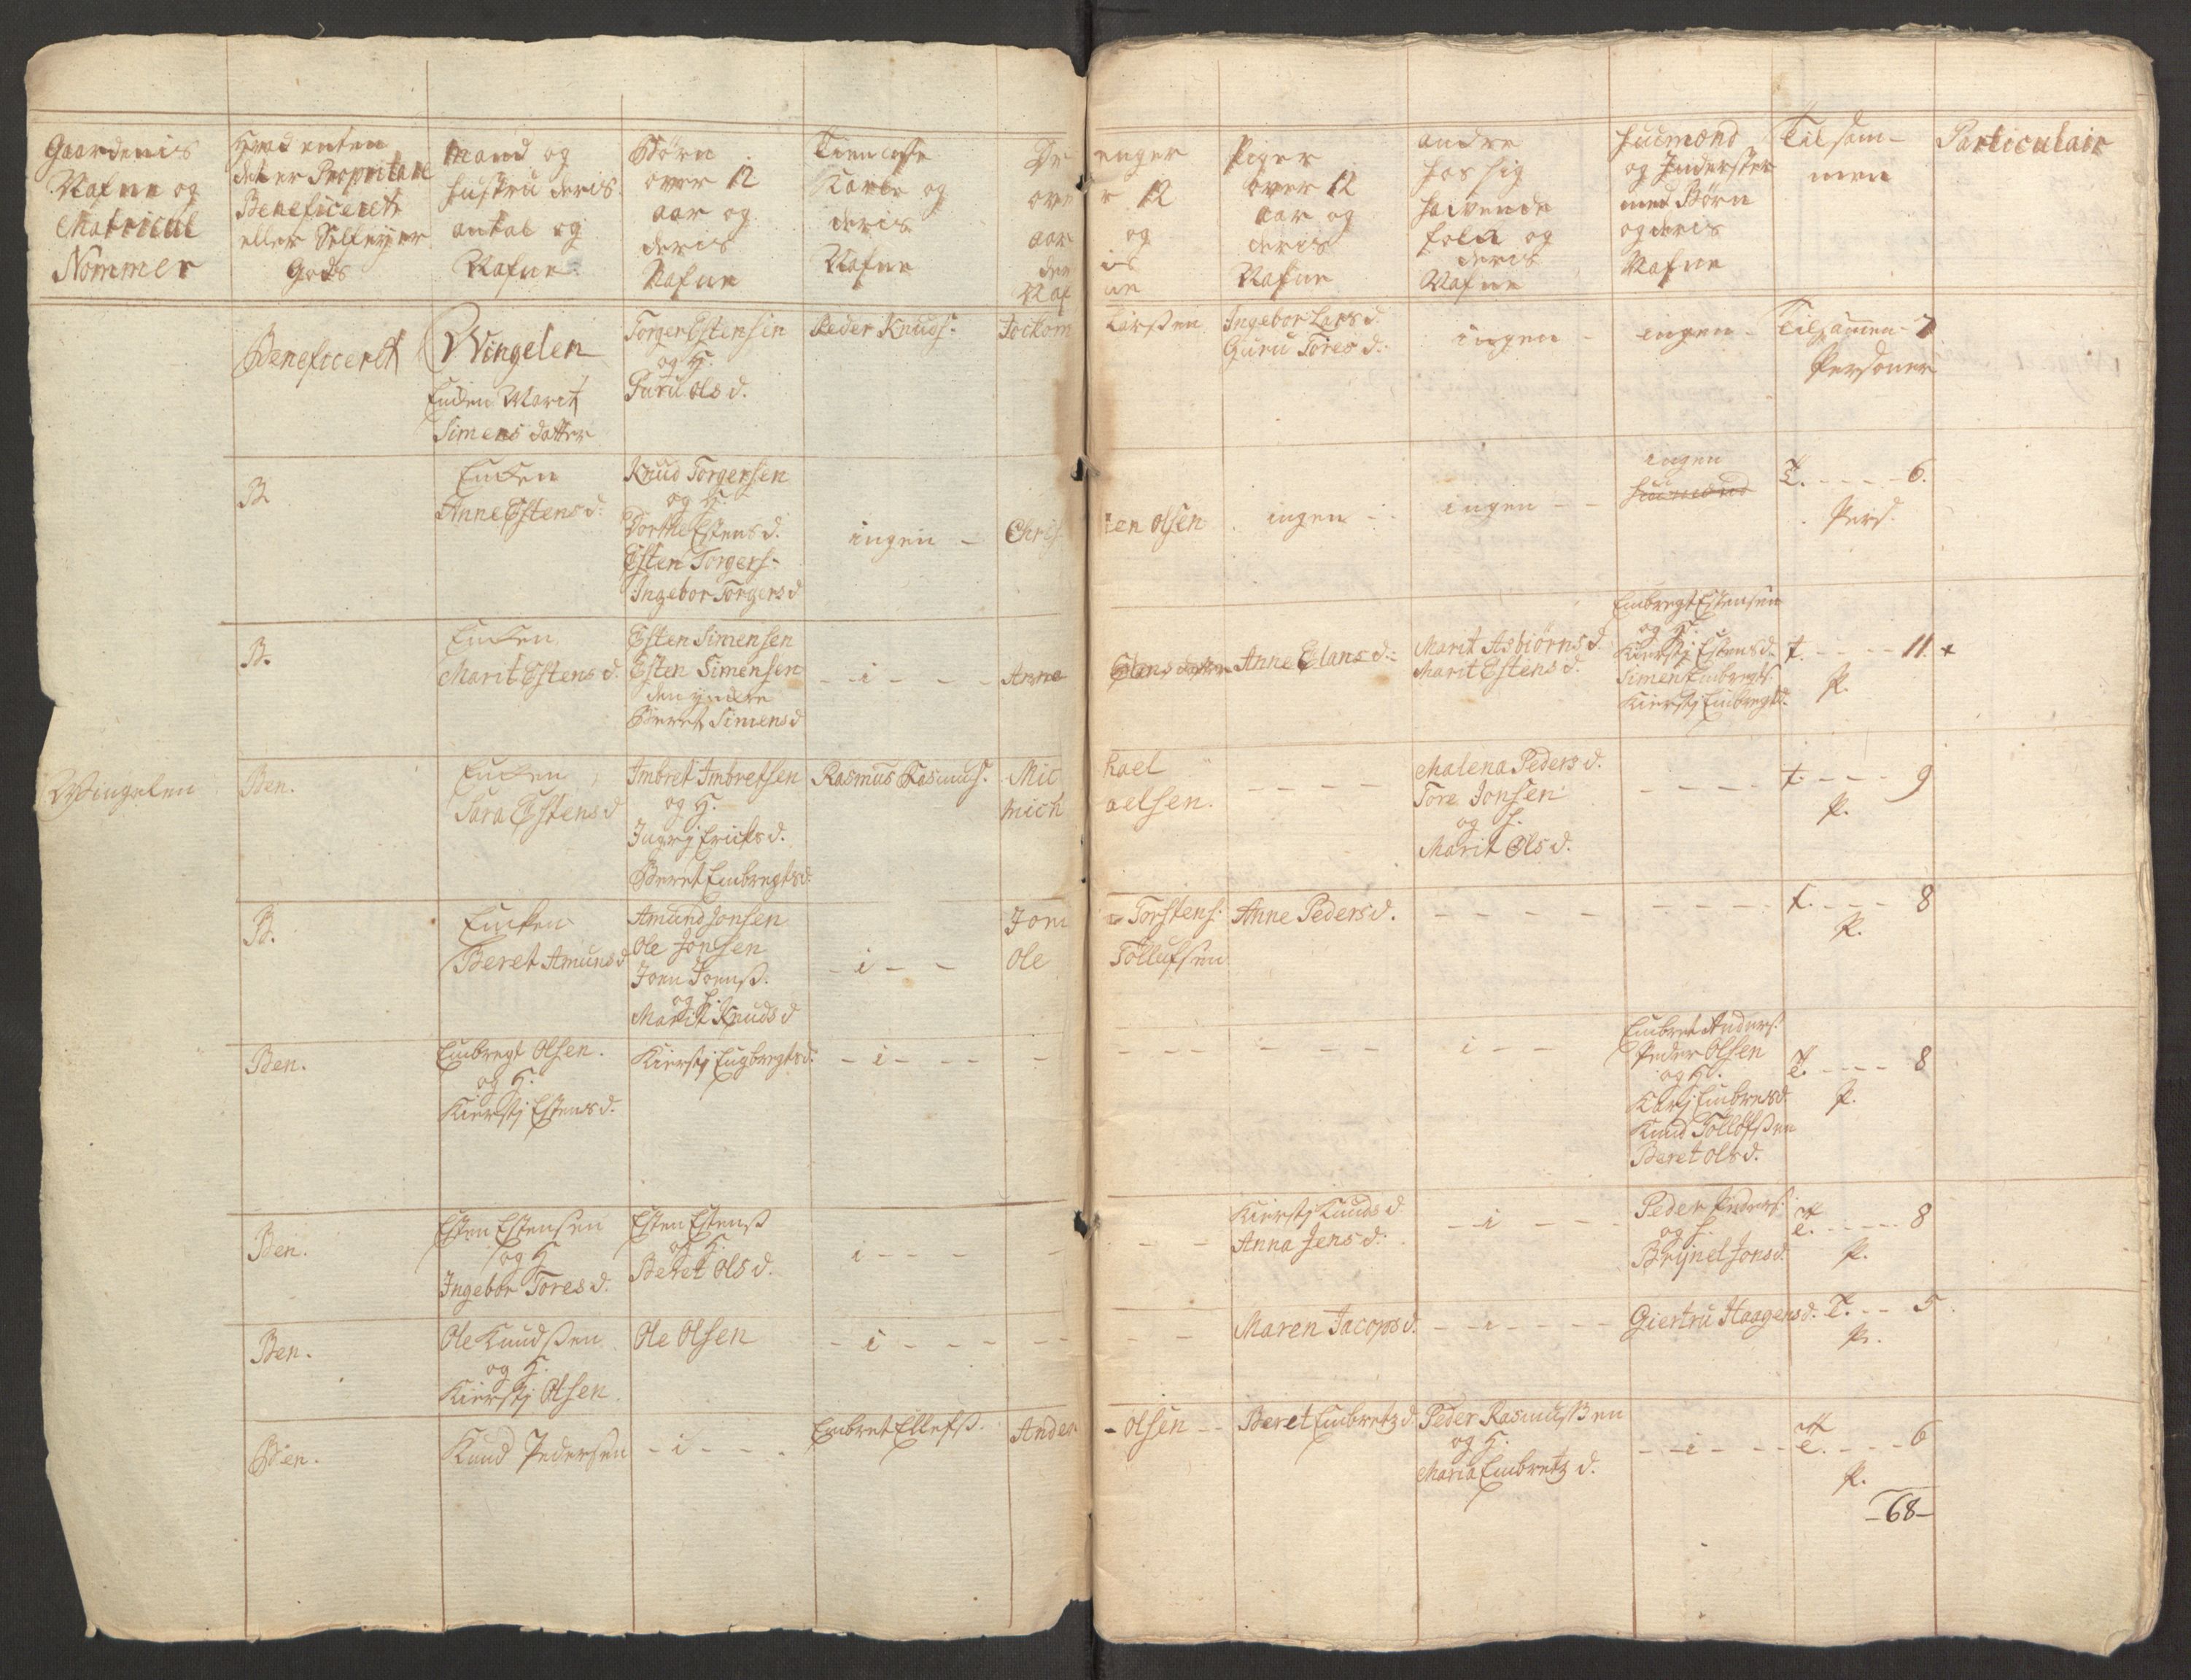 Gaardenis
Nafne og
Matricul
Nommer
Hvad enten
det er Propritair
Beneficerets
eller Selfeyer
Gods
Mand og
Hustru deris
antal og
Nafne
Børn
over 12
aar og
deris
Nafne
Tieniste
Karle og
deris
Nafne
Drenger
over 12
aar og
deris
Nafne
Piger
over 12
aar og
deris
Nafne
andre
hos sig
hafvende
folck og
deris
Nafne
Huusmænd
og Inderster
med Børn
og deris
Nafne
Tilsam-
men
Particulair
Beneficeret
Wingelen
Encken Marit
Simens datter
Torger Estensen
og H.
Guru Ols d.
Peder Knuds.
Jockom Larsen
Ingebor Lars d.
Guru Tores d.
ingen -
ingen -
Tilsammen - 7
Personer
B
Encken
Anne Estens d.
Knud Torgersen
og H.
Dorthe Estens d.
Esten Torgers-
Ingebor Torgers d
ingen -
Christen Olsen
ingen -
ingen - -
ingen
Huusmænd
T. - - - - 6.
Pers.
B.
Encken
Marit Estens d.
Esten Simensen
Esten Simensen
den yndre
Beret Simens d
- - i - - -
Anne Elans datter
Anne Elans d.
Marit Asbiørns d.
Marit Estens d.
Embregt Estensen
og H.
Kierstj Estens d.
Simen Embregts.
Kierstj Embregts d.
t. - - - - 11. +
P.
Wingelen
Ben.
Encken
Sara Estens d
Imbret Imbretsen
og H.
Ingrj Ericks d.
Beret Embregts d.
Rasmus Rasmus.
Michael
Michaelsen.
- - - -
Malena Peders d.
Tore Jonsen
og H.
Marit Ols d.
- - - -
t. - - - 9
P.
B.
Encken
Beret Amunds d
Amund Jonsen
Ole Jonsen
Joen Joens.
og H.
Marit Knuds d
- i - -
Jon Torstens.
Ole Tollufsen
Anne Peders d.
- - - - -
- - - -
t. - - - 8
P.
Ben.
Embregt Olsen.
og H.
Kierstj Estens d.
Kierstj Engbregts d.
- i - - -
- - - -
- - - -
i - -
Embret Anders.
Peder Olsen
og H.
Karj Embres d
Knud Tolløfsen
Beret Ols d.
T. - - - 8
P.
Ben.
Esten Estensen
og H
Ingebor Tores d.
Esten Estens
og H.
Beret Ols d.
i - - -
- - -
Kierstj Knuds d
Anna Jens d.
- i - - -
Peder Peders.
og H.
Brynel Jons d.
T. - - - - 8
P.
Ben.
Ole Knudsen
og H.
Kierstj Olsen.
Ole Olsen
- i - - -
- - - -
Maren Jacops d.
- - i - - - -
Giertru Haagens d.
T. - - 5
P.
Ben.
Knud Pedersen
- i - - .
Embret Ellefs.
Ander - Olsen - -
Beret Embretz d.
Peder Rasmussen
og H.
Maria Embretz d.
- - i - - -
T. - - - 6
P.
- 68 -